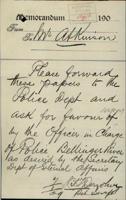 Memorandum 190
From
To Mr Atkinson
Please forward
these papers to the
Police Dept and
ask for favour of
report
by the Officer in Charge
of Police Bellinger River
as desired by the Secretary
Dept of External Affairs